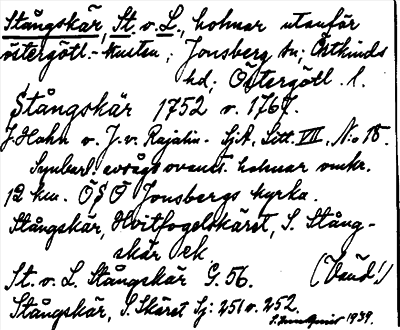 Stångskär, St. o. L., holmar utanför
östergötl.-kusten; Jonsberg sn; Östkinds
hd; Östergötl. l.
Stångskär 1752 o. 1767.
J. Hahn o. J. v. Rajalin. Sjk. Litt. VII, N:o 18.
Synbarl. ovanst. holmar omkr.
12 km. ÖSÖ Jonsbergs kyrka.
Stångskär, Hvitfogelskäret, S. Stång-
skär ek.
St. o. L. Stångskär G. 56. (Vänd!)
Stångskär, S. Skäret Sj: 251 o. 252.
1939.